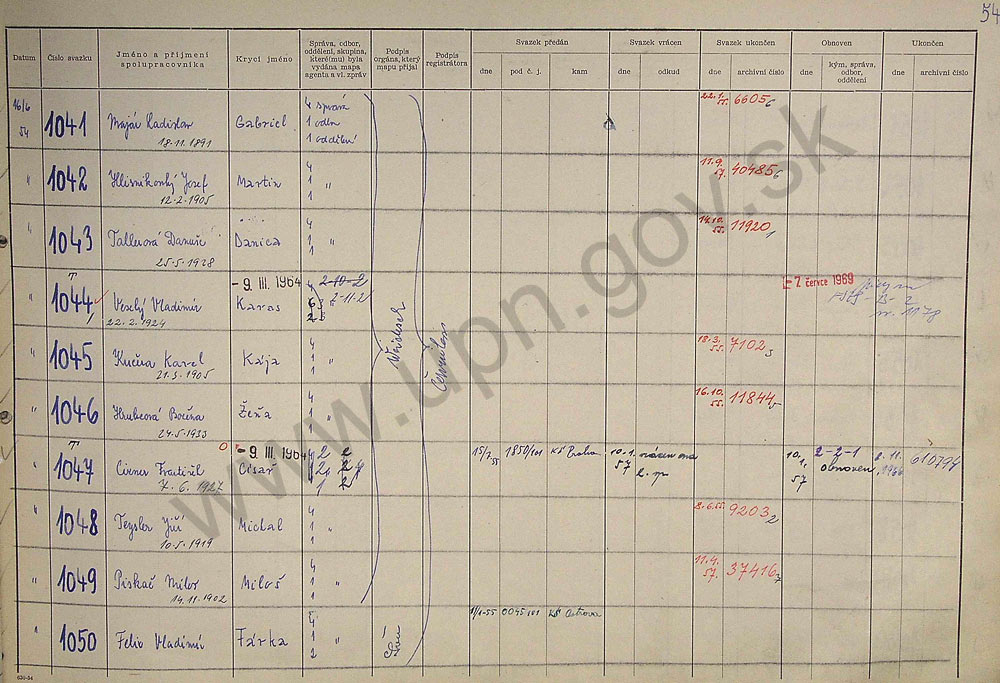 54
Datum
Číslo svazku
Jméno a příjmení
spolupracovníka
Krycí jméno
Správa, odbor,
oddělení, skupina,
které(mu) byla
vydána mapa
agenta a vl. zpráv
Podpis
orgána, který
mapu přijal
Podpis
registrátora
Svazek předán
dne
pod č. j.
kam
Svazek vrácen
dne
odkud
Svazek ukončen
dne
archivní číslo
Obnoven
dne
kým, správa,
odbor,
oddělení
Ukončen
dne
archivní číslo
16/6
54
1041
Majár Ladislav
18.11.1891
Gabriel
4 správa
1 odbor
1 oddělení
22.1.
55.
6605
"
1042
Josef
12.2.1905
Martin
4
1 "
1
11.9.
57.
40485
"
1043
Danuše
25.5.1928
Danica
4
1 "
1
14.10.
55.
11920
"
1044
Veselý Vladimír
22.2.1924
- 9. III. 1964
Karas
2-10-2
2-11-2
- 7. července 1969
"
1045
Kučera Karel
21.3.1905
Kája
4
1 "
1
18.3.
55.
7102
"
1046
Hrubcová Božena
24.5.1933
Žeňa
4
1 "
1
16.10.
55.
11844
"
1047
7.6.1927
- 9. III. 1964
Císař
15/7 55
1850/101
KS Praha
10.1.
57
10.
1.
57
2-2-1
obnoven
610794
"
1048
Teysler Jiří
10.5.1919
Michal
4
1 "
1
8.6.55.
9203
"
1049
Piskač Milos
14.11.1902
Miloš
4
1 "
1
11.4.
57.
37416
"
1050
Felix Vladimír
Fárka
1 "
2
1/1-55
0045/101
KS Ostrava
630-54
www.upn.gov.sk